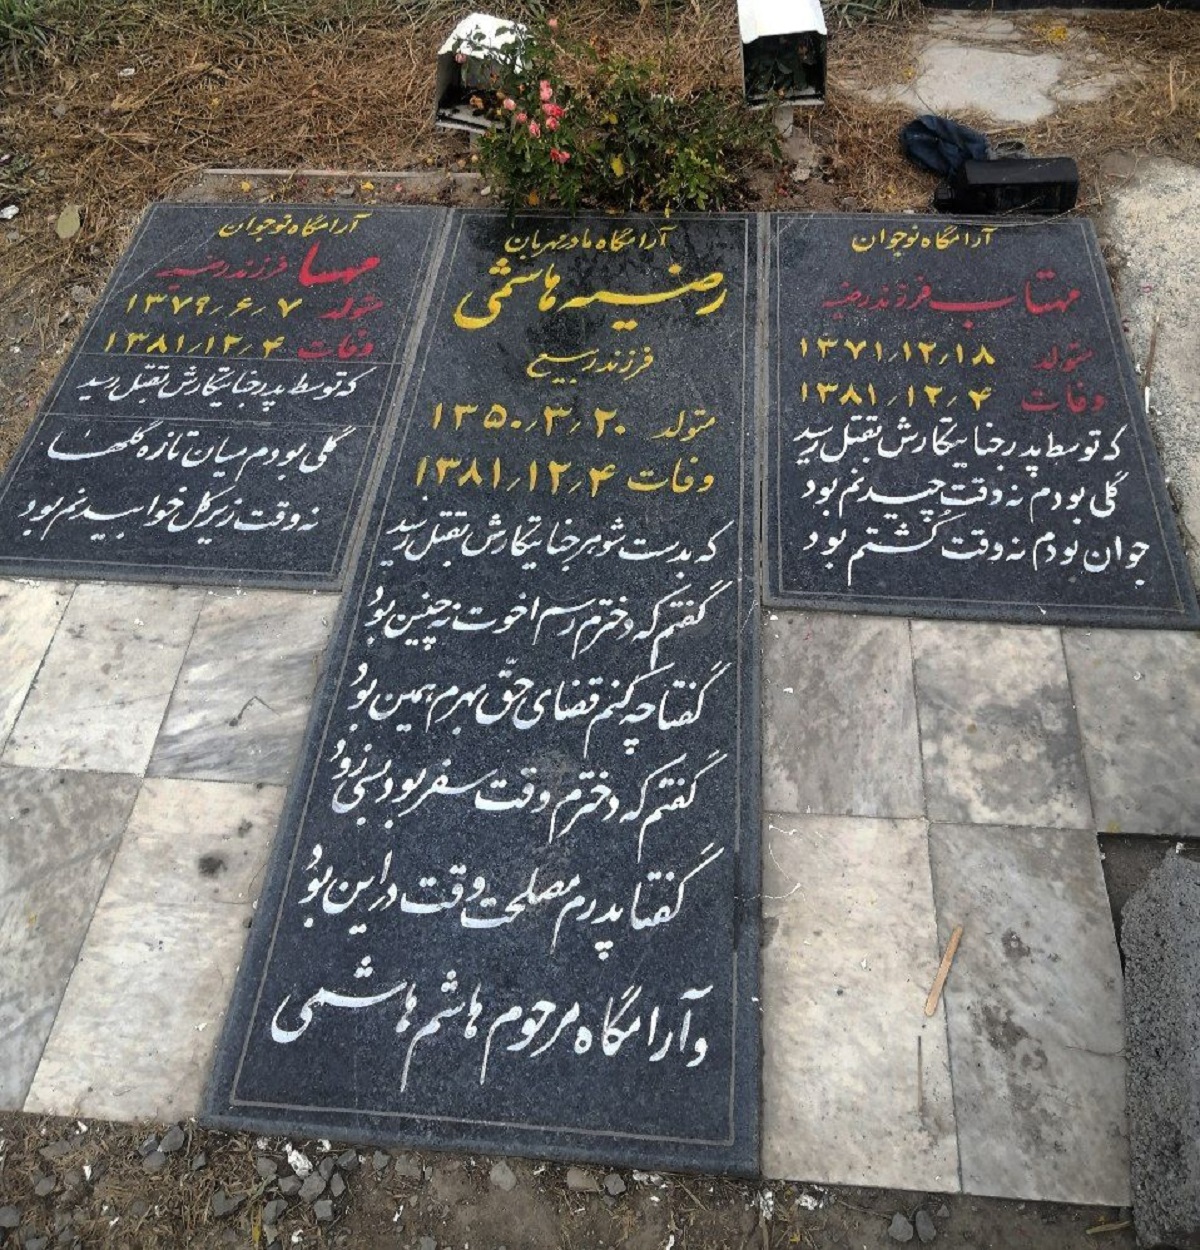 آرامگاه نوجوان
مهتاب فرزند رضیه
متولد ۱۳۷۱٫۱۲٫۱۸
وفات ۱۳۸۱٫۱۲٫۴
که توسط پدر جنایتکارش بقتل رسید
گلی بودم نه وقت چیدنم بود
جوان بودم نه وقت کشتنم بود
آرامگاه مادر مهربان
رضیه هاشمی
فرزند ربیع
متولد ۱۳۵۰٫۳٫۲۰
وفات ۱۳۸۱٫۱۲٫۴
که بدست شوهر جنایتکارش بقتل رسید
گفتم که دخترم رسم اخوت نه چنین بود
گفتا چه کنم قضای حق بهرم همین بود
گفتم که دخترم وقت سفر بود بسی زود
گفتا پدرم مصلحت وقت در این بود
و آرامگاه مرحوم هاشم هاشمی
آرامگاه نوجوان
مهسا فرزند رضیه
متولد ۱۳۷۹٫۶٫۷
وفات ۱۳۸۱٫۱۲٫۴
که توسط پدر جنایتکارش بقتل رسید
گلی بودم میان تازه گلها
نه وقت زیر گل خوابیدنم بود